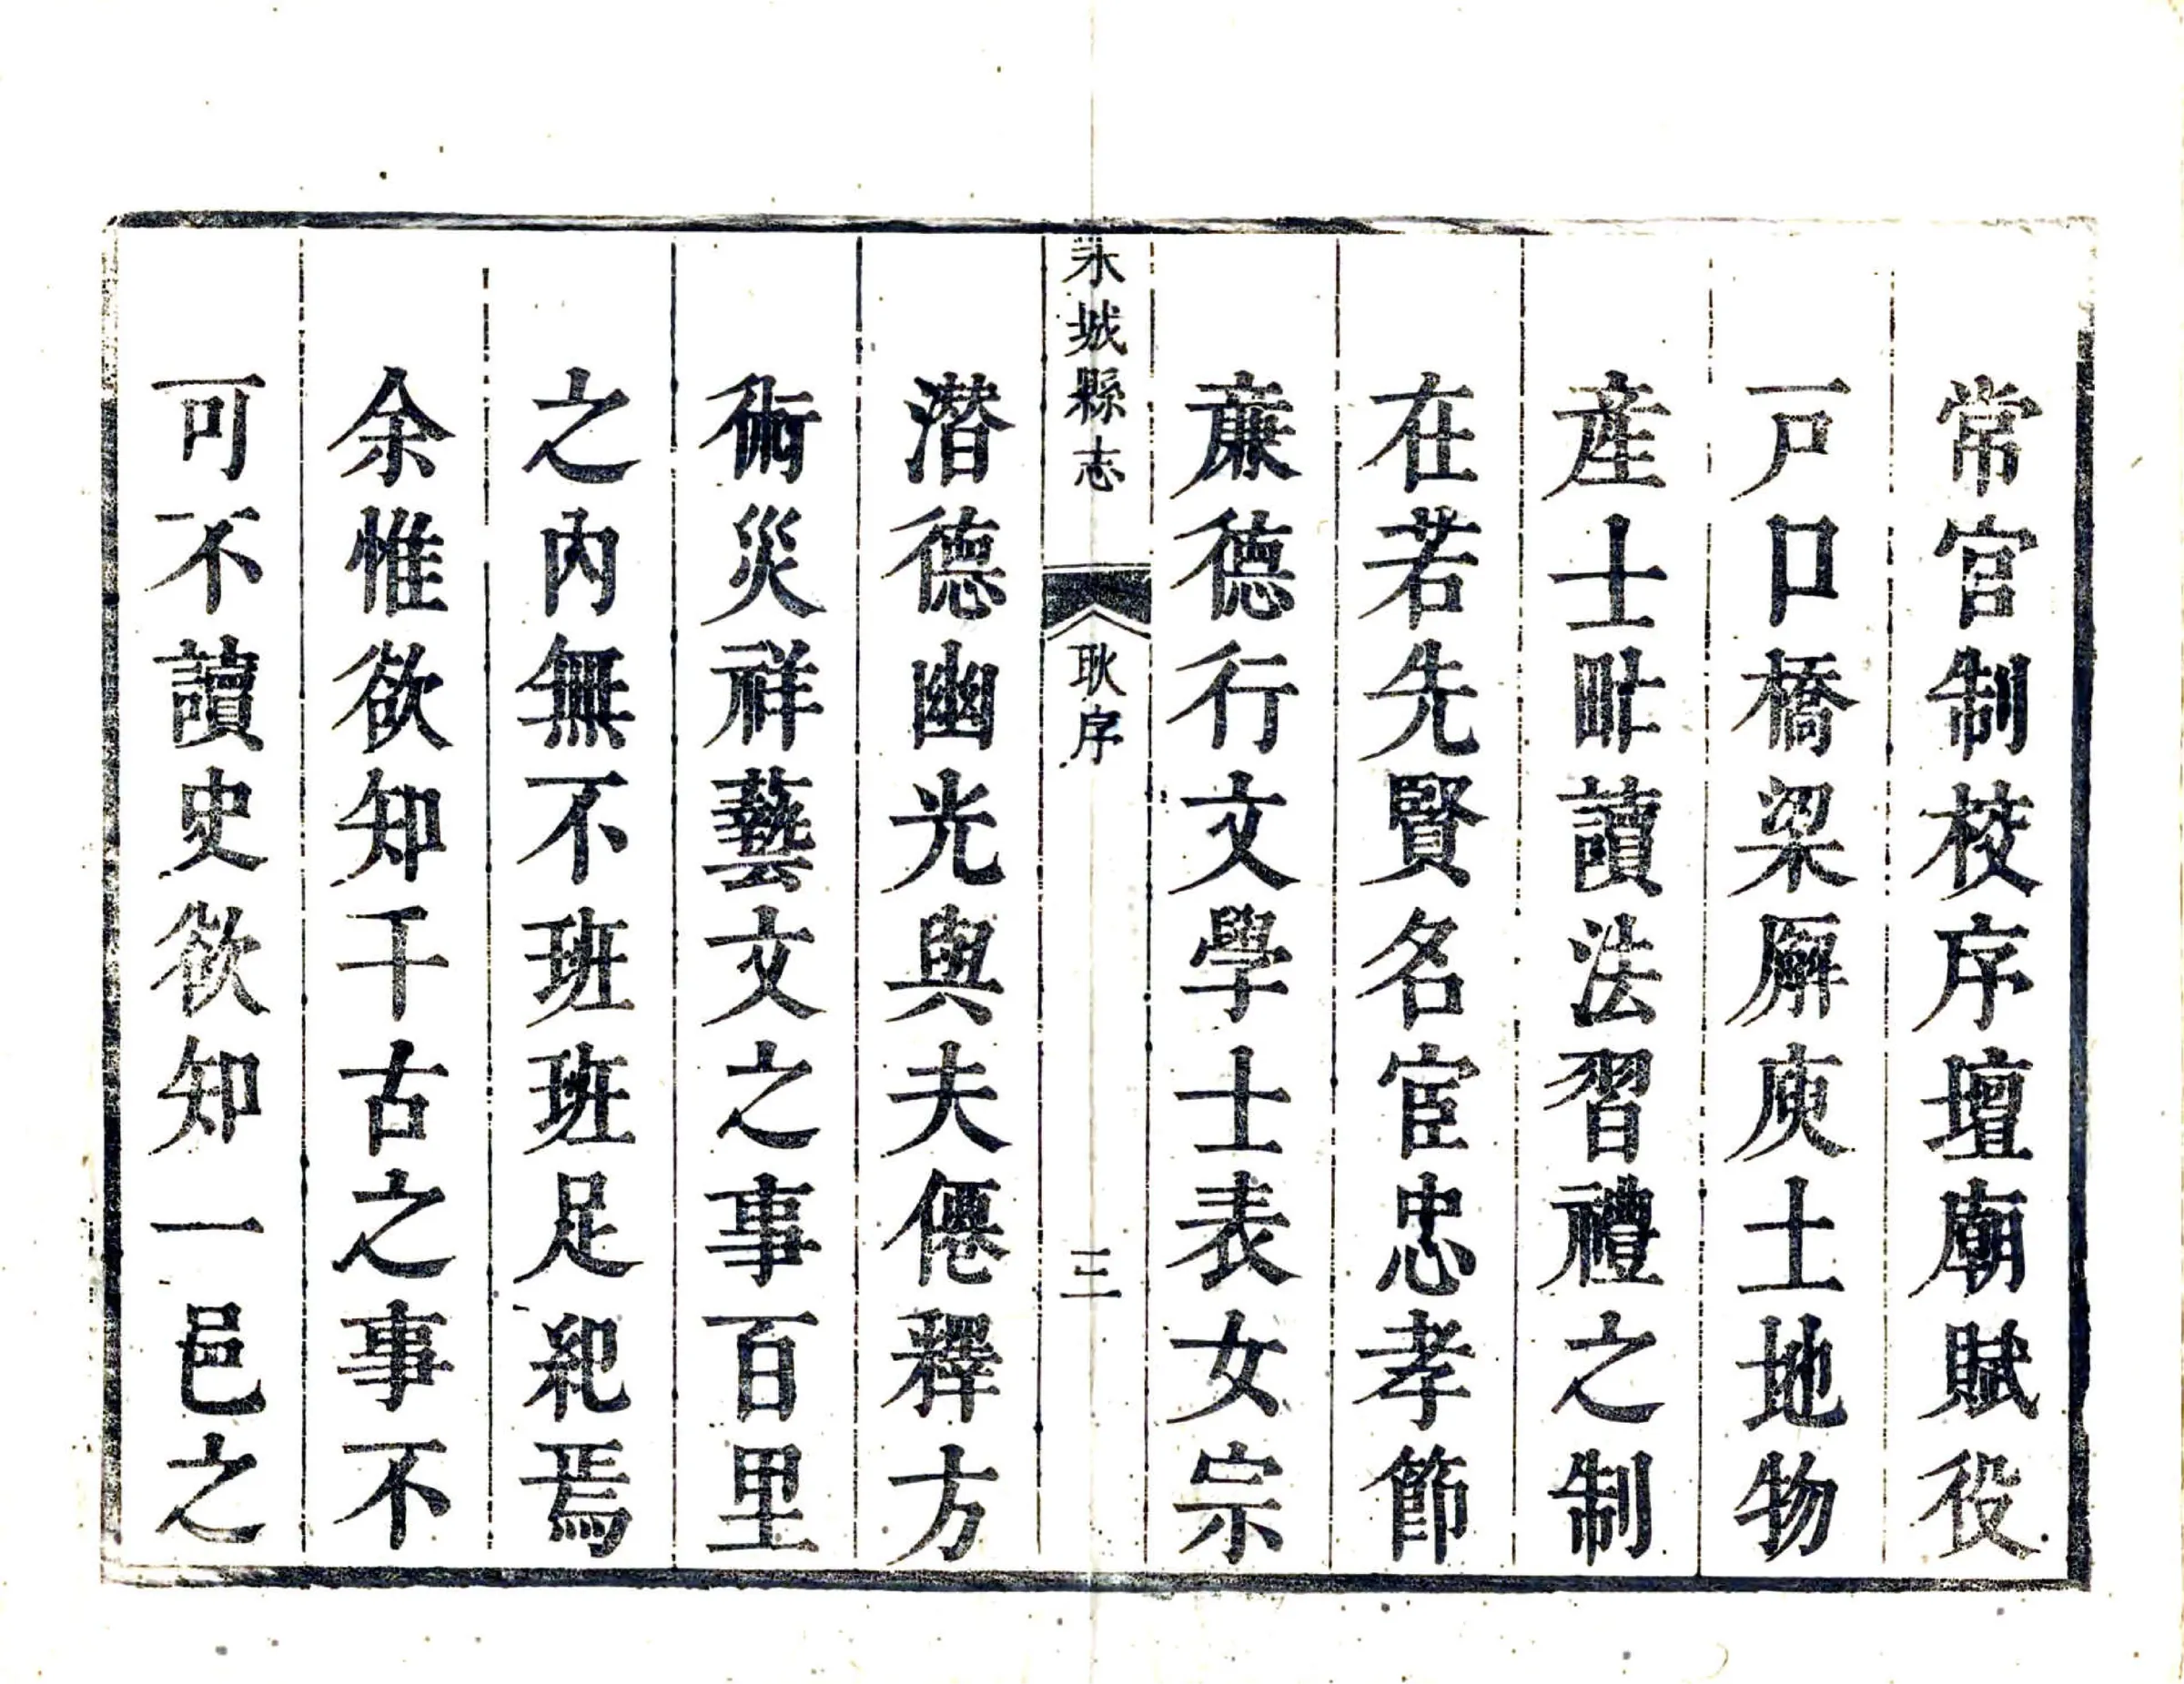 常官制校序壇廟賦役
戸口橋梁廨庾土地物
産士毗讀法習禮之制
在若先賢名宦忠孝節
亷德行文學士表女宗
永城縣志
耿序
三
潜德幽光與夫僊釋方
術災祥藝文之事百里
之內無不班班足紀焉
余惟欲知千古之事不
可不讀史欲知一邑之